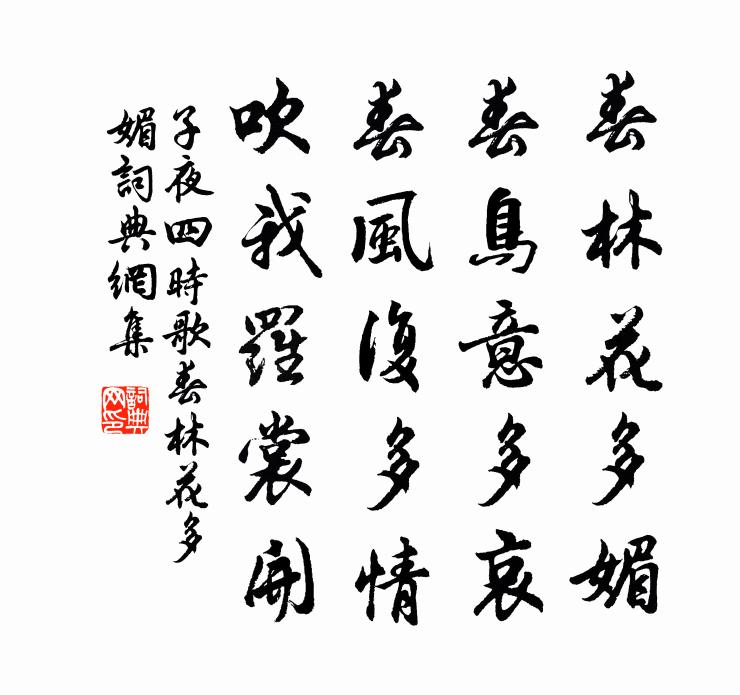 春林花多媚
春鳥意多哀
春風復多情
吹我羅裳開
子夜四時歌春林花多
媚詞典網集
詞典
网印